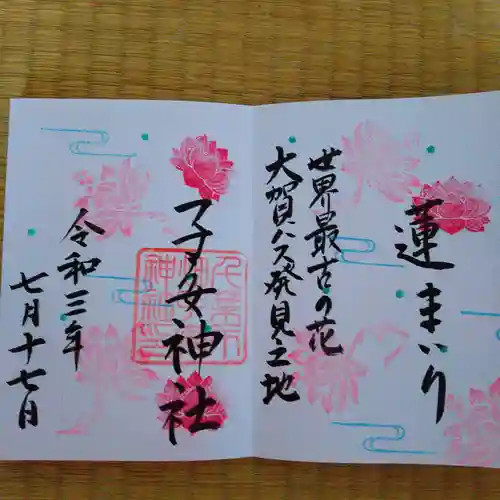 蓮まいり
世界最古の花
大賀ハス発見之地
子安神社
令和三年
七月十七日